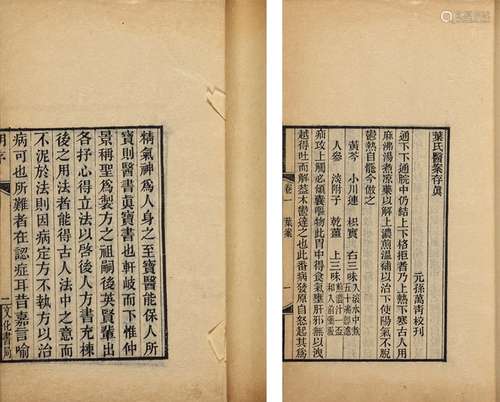 精氣神爲人身之至寶醫能保人所
寶則醫書眞寶書也軒岐而下惟仲
景稱聖爲製方之祖嗣後英賢輩出
各抒心得立法以啓後人方書充棟
後之用法者能得古人法中之意而
不泥於法則因病定方不執方以治
病可也所難者在認症耳昔嘉言喻
二 文化書局
葉氏醫案存眞
元孫萬青校刊
通下下通脘中仍結上下格拒者乃上熱下寒古人用
麻沸湯煮涼藥以解上濃煎溫補以治下使陽氣不脫
鬱熱自罷今倣之
黃芩 小川連 枳實 右三味
人參 淡附子 乾薑 上三味
痞攻上觸必傾囊嘔物此胃中得食氣壅肝邪無以洩
越得吐而解益木鬱達之也此番病發原自怒起其爲
卷一 葉案
一